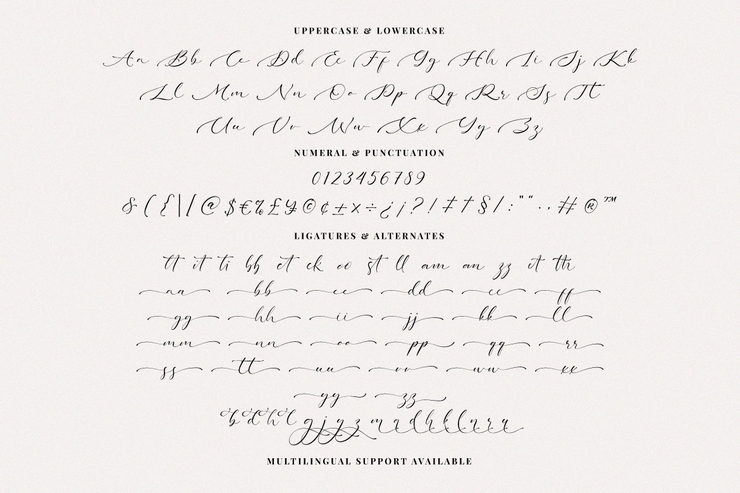 UPPERCASE & LOWERCASE
Aa Bb Cc Dd Ee Ff Gg Hh Ii Jj Kk
Ll Mm Nn Oo Pp Qq Rr Ss Tt
Uu Vv Ww Xx Yy Zz
NUMERAL & PUNCTUATION
0123456789
& ( { | \ [ @ $ € % £ ¥ © ¢ ± × ÷ ¿ ¡ ? ! ‡ † § / : " “ . . # ® ™
LIGATURES & ALTERNATES
tt it ti bb et ck oo st ll am an zz ot th
aa bb cc dd ee ff
gg hh ii jj kk ll
mm nn oo pp qq rr
ss tt uu vv ww xx
yy zz
b d h l g j y z m a d h k l n r a
MULTILINGUAL SUPPORT AVAILABLE